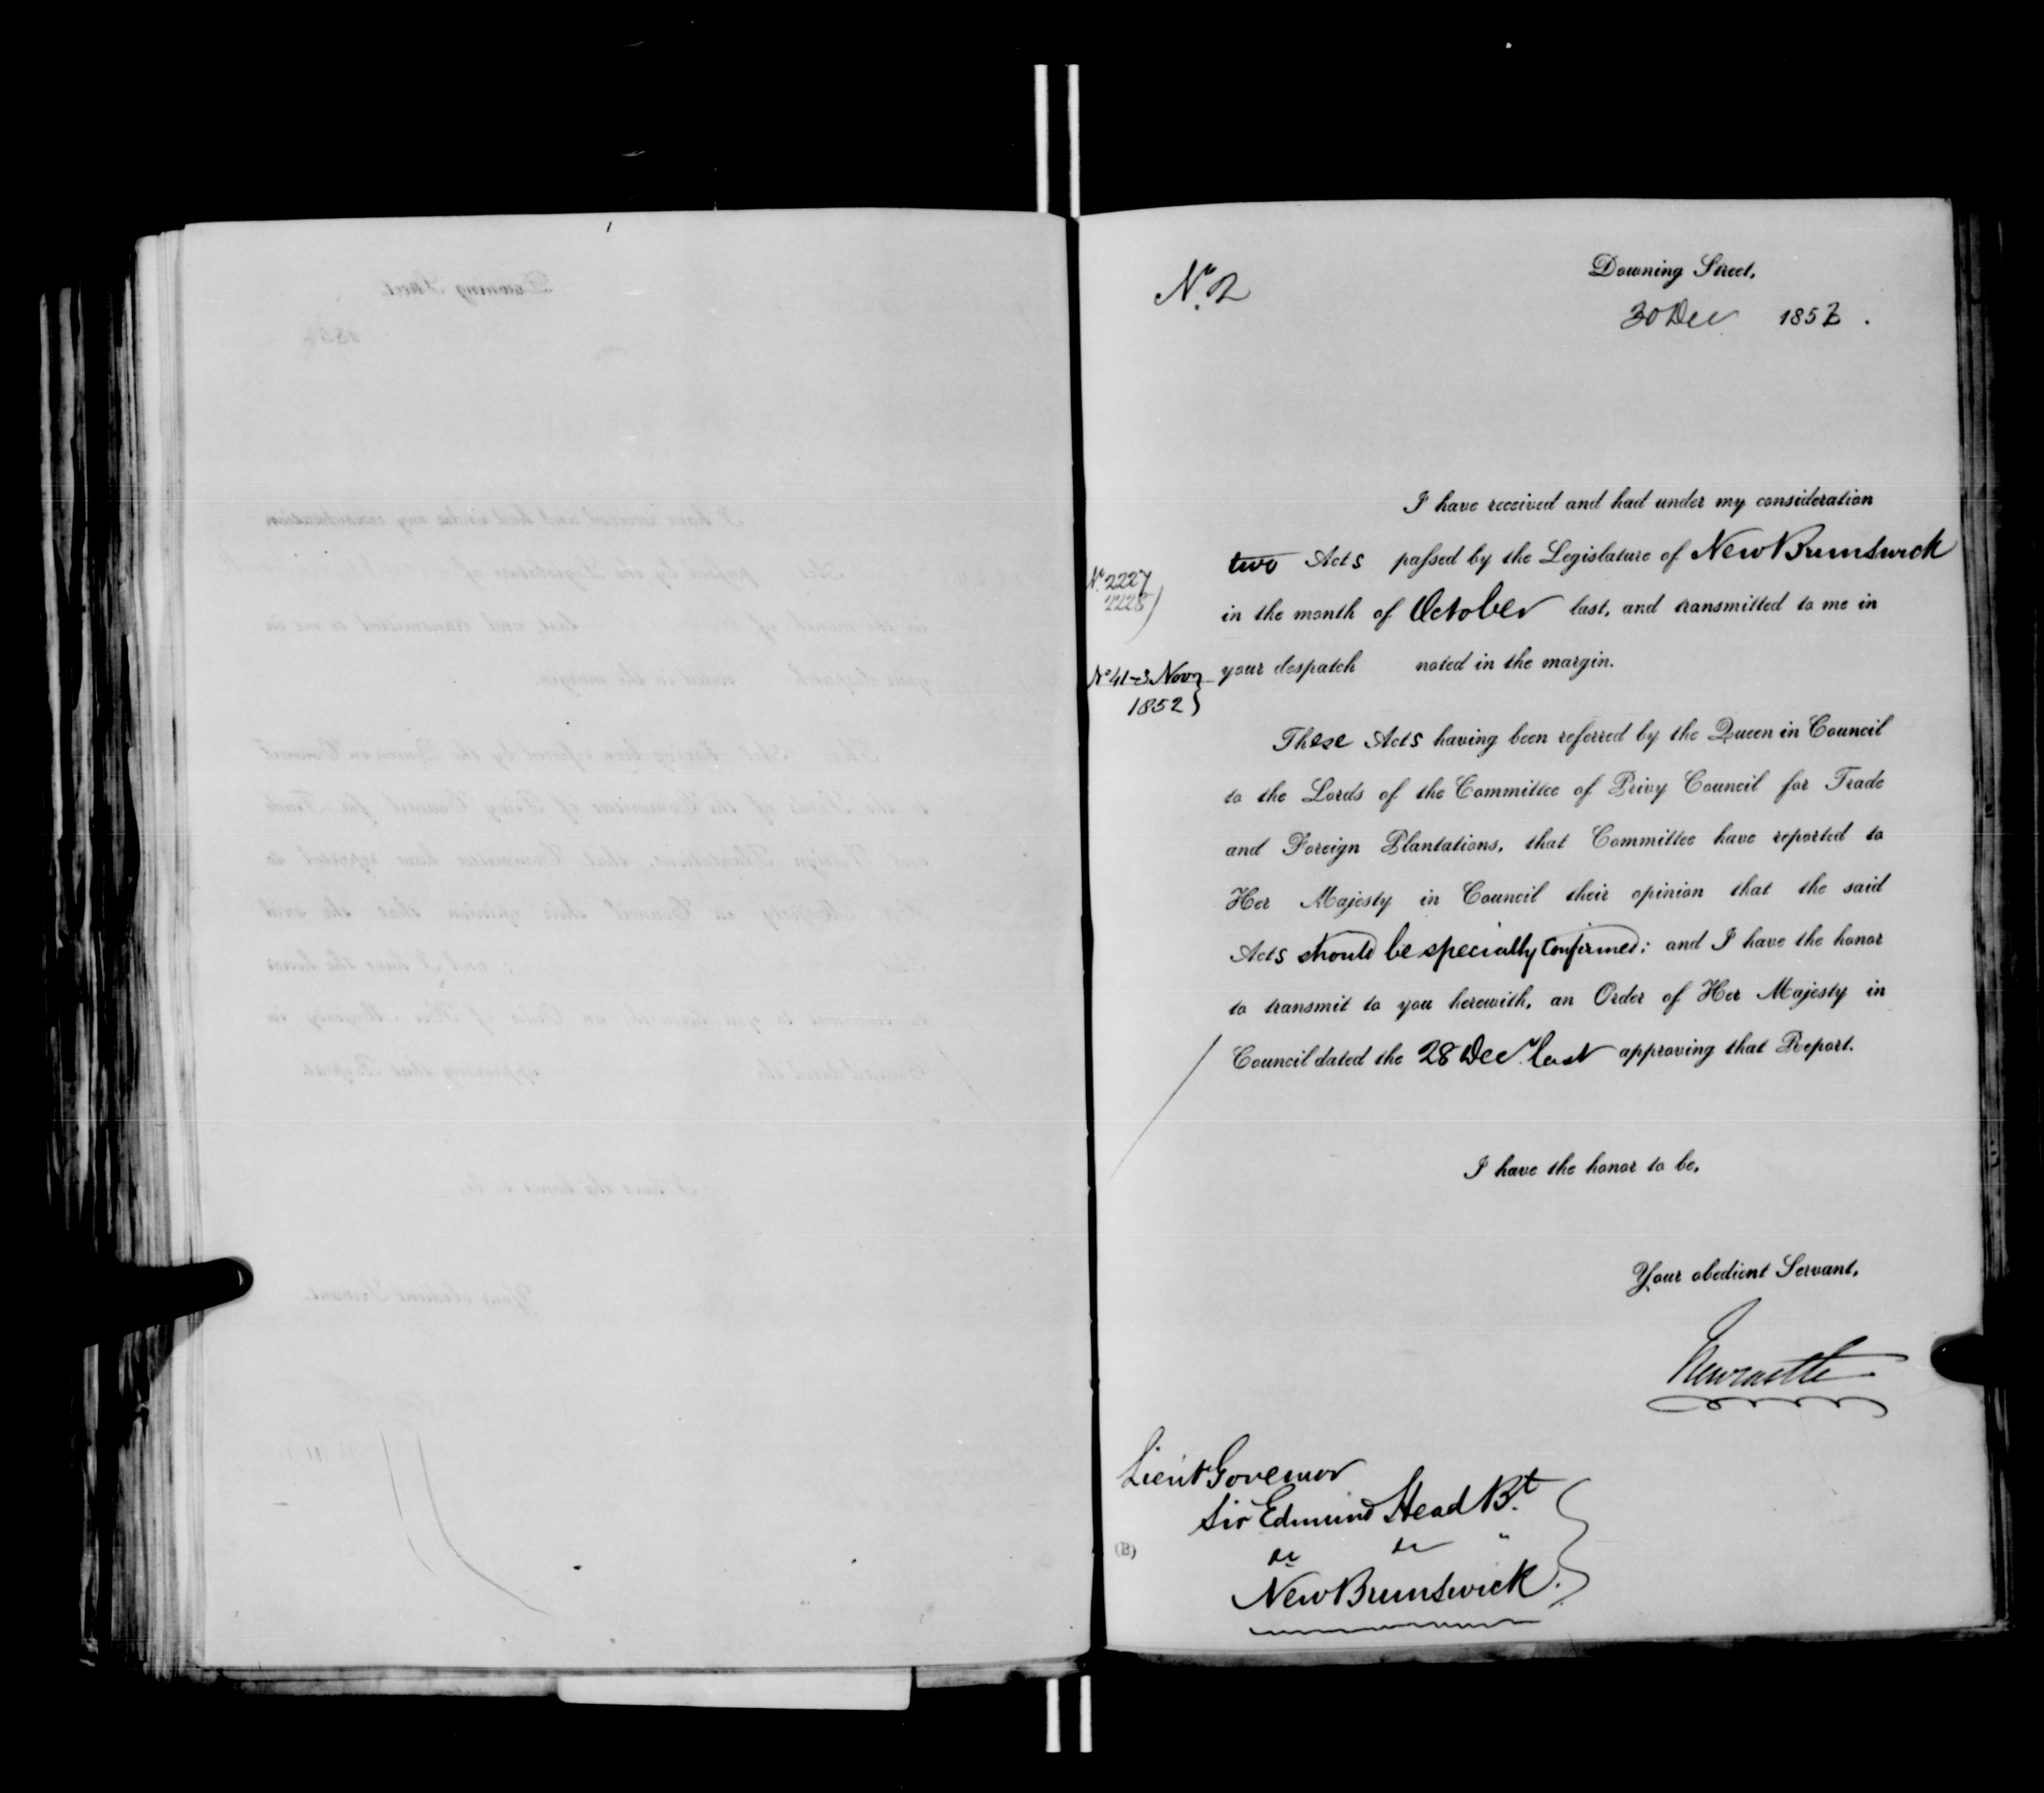 No. 2
Downing Street,
30 Dec 1852.
I have received and had under my consideration
two Acts paſsed by the Legislature of New Brunswick
No. 2227
2228
in the month of October last, and transmitted to me in
your despatch noted in the margin.
No 41-3 Novr
1852
These Acts having been referred by the Queen in Council
to the Lords of the Committee of Privy Council for Trade
and Foreign Plantations, that Committee have reported to
Her Majesty in Council their opinion that the said
Acts should be specially confirmed; and I have the honor
to transmit to you herewith, an Order of Her Majesty in
Council dated the 28 Decr. last approving that Report.
I have the honor to be,
Your obedient Servant,
Newcastle
Lieut Governor
Sir Edmund Head Bt.
(B)
&c &c "
New Brunswick.